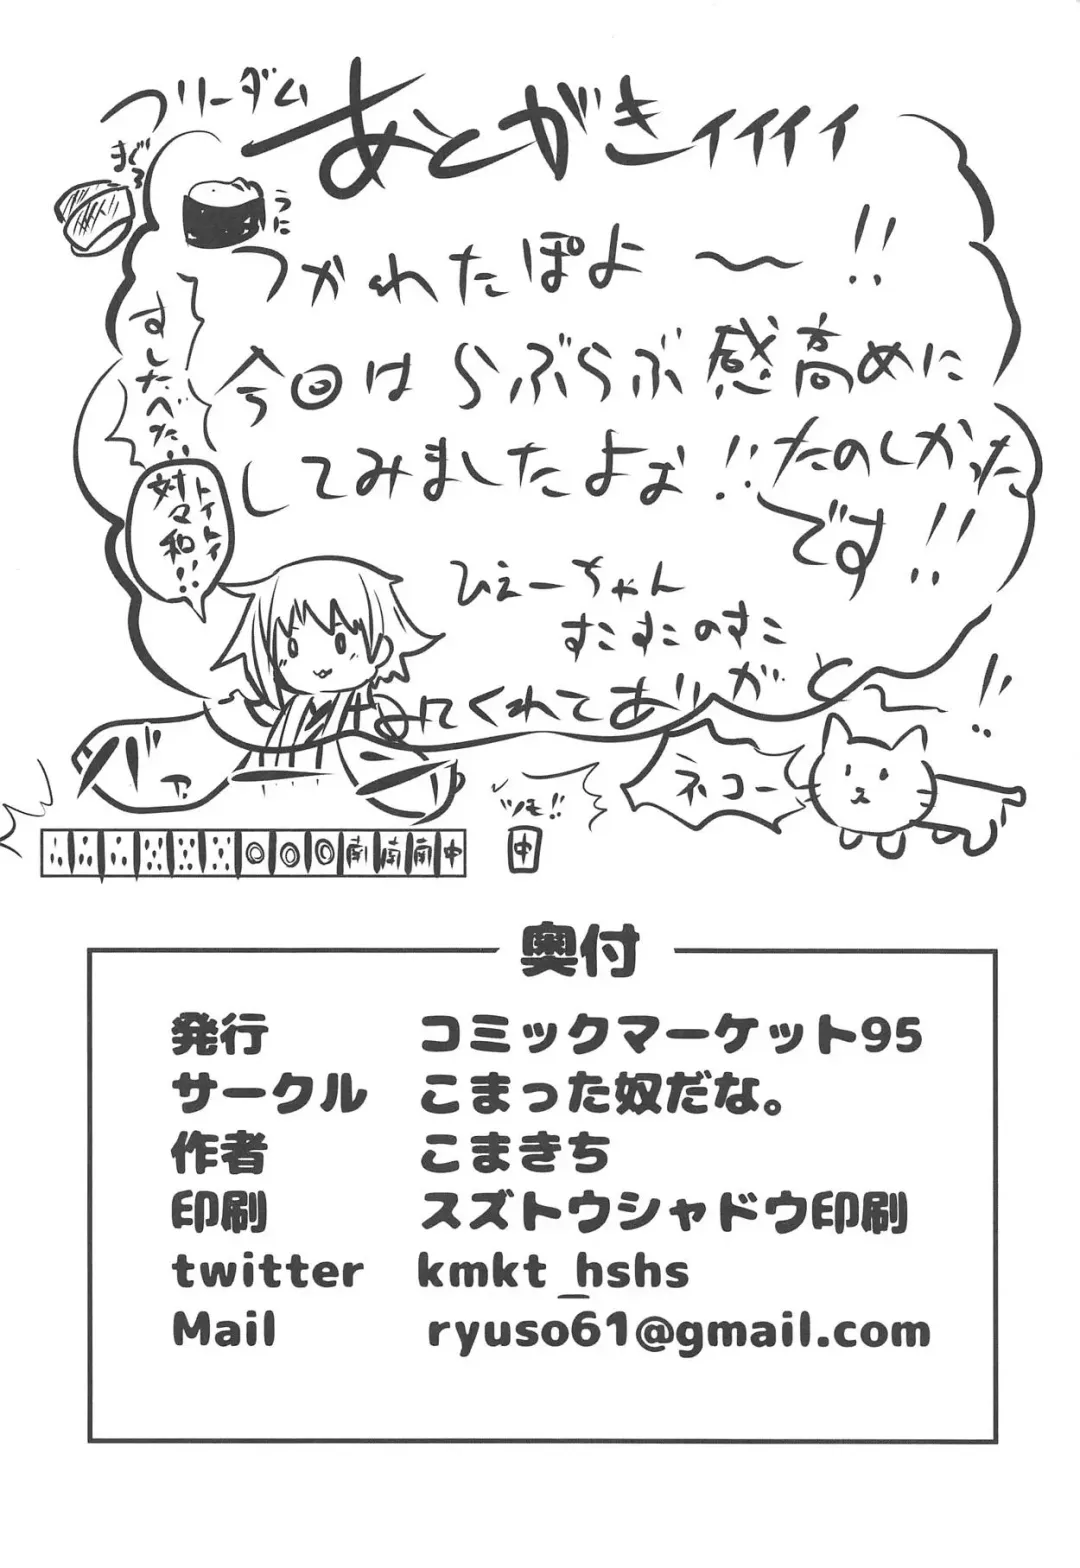 フリーダム
あとがきィィィィ
まぐろ
うに
つかれたぽよ〜!!
今回はらぶらぶ感高めに
してみましたよぉ!!たのしかった
です!!
すしたべた!!
トイトイ
対々和!!
ひえーちゃん
すこすこのすこ
みてくれてありがと
!!
ネコー
ツモ!!
南南南中
中
奥付
発行 コミックマーケット95
サークル こまった奴だな。
作者 こまきち
印刷 スズトウシャドウ印刷
twitter kmkt_hshs
Mail ryuso61@gmail.com